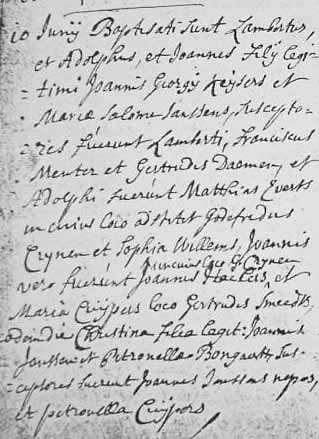 10 Junij Baptisati sunt Lambertus,
et Adolphus, et Joannes filij legi-
- timi Joannis Georgij Keysers et
Mariæ Salome Janssens, suscepto-
- res fuerunt Lamberti, Franciscus
Menter et Gertrudis Daemen, et
Adolphi fuerunt Matthias Everts
in cuius loco adstitit Godefridus
Crynen et Sophia Willems, Joannis
in cuius loco G: Crynen
vero fuerunt Joannes Haeters, et
Maria Cuijpers loco Gertrudis Smeedts,
eodem die Christina filia legit: Joannis
Janssen et Petronella Bongaerts, sus-
- ceptores fuerunt Joannes Janssens nepos,
et petronella Cuijpers,